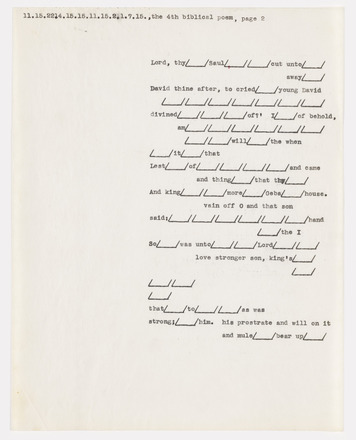 11.15.22!4.15.18.11.15.2!1.7.15.,the 4th biblical poem, page 2
Lord, thy/___/Saul/___/ /___/cut unto/___/
away/___/
David thine after, to cried/___/young David
/___/ /___/ /___/ /___/ /___/ /___/ /___/
divined/___/ /___/ /___/of?' I/___/of behold,
am/___/ /___/ /___/ /___/ /___/ /___/
/___/ /___/will/___/the when
/___/it/___/that
Lest/___/of/___/ /___/ /___/ /___/and name
and thing/___/that thy/___/
And king/___/ /___/more/___/Geba/___/house.
vain off O and that son
said:/___/ /___/ /___/ /___/ /___/ /___/hand
/___/the I
So/___/was unto/___/ /___/Lord/___/ /___/
love stronger son, king's/___/
/___/
/___/ /___/
/___/
that/___/to/___/ /___/as was
strong;/___/him. his prostrate and will on it
and mule/___/bear up/___/